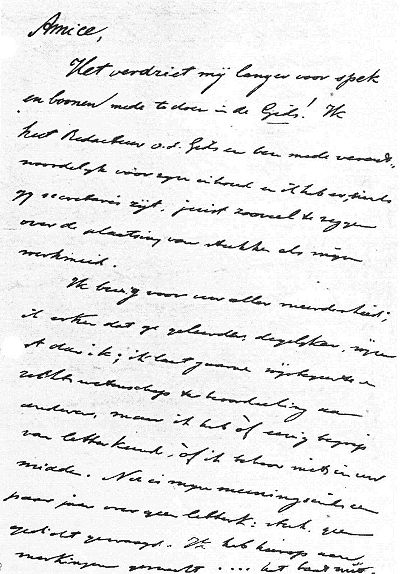 Amice,
Het verdriet mij langer voor spek
en boonen mede te doen in de Gids! Ik
heet Redacteur v.d. Gids en ben mede verant-
woordelijk voor zijn inhoud en ik heb er, sinds
gij secretaris zijt, juist zooveel te zeggen
over de plaatsing van stukken als mijn
werkmeid.
Ik buig voor uw aller meerderheid;
ik erken dat ge geleerder, degelijker, wijzer
zt dan ik; ik laat gaarne wijsbegeerte en
rechtswetenschap ter beoordeeling aan
anderen, maar ik heb òf eenig begrip
van letterkund, òf ik behoor niet in uw
midden. Nu is mijn meening sinds een
paar jaar over geen letterk: stuk, geen
gedicht gevraagd. Ik heb hierop aan-
merkingen gemaakt .... het baat niet.